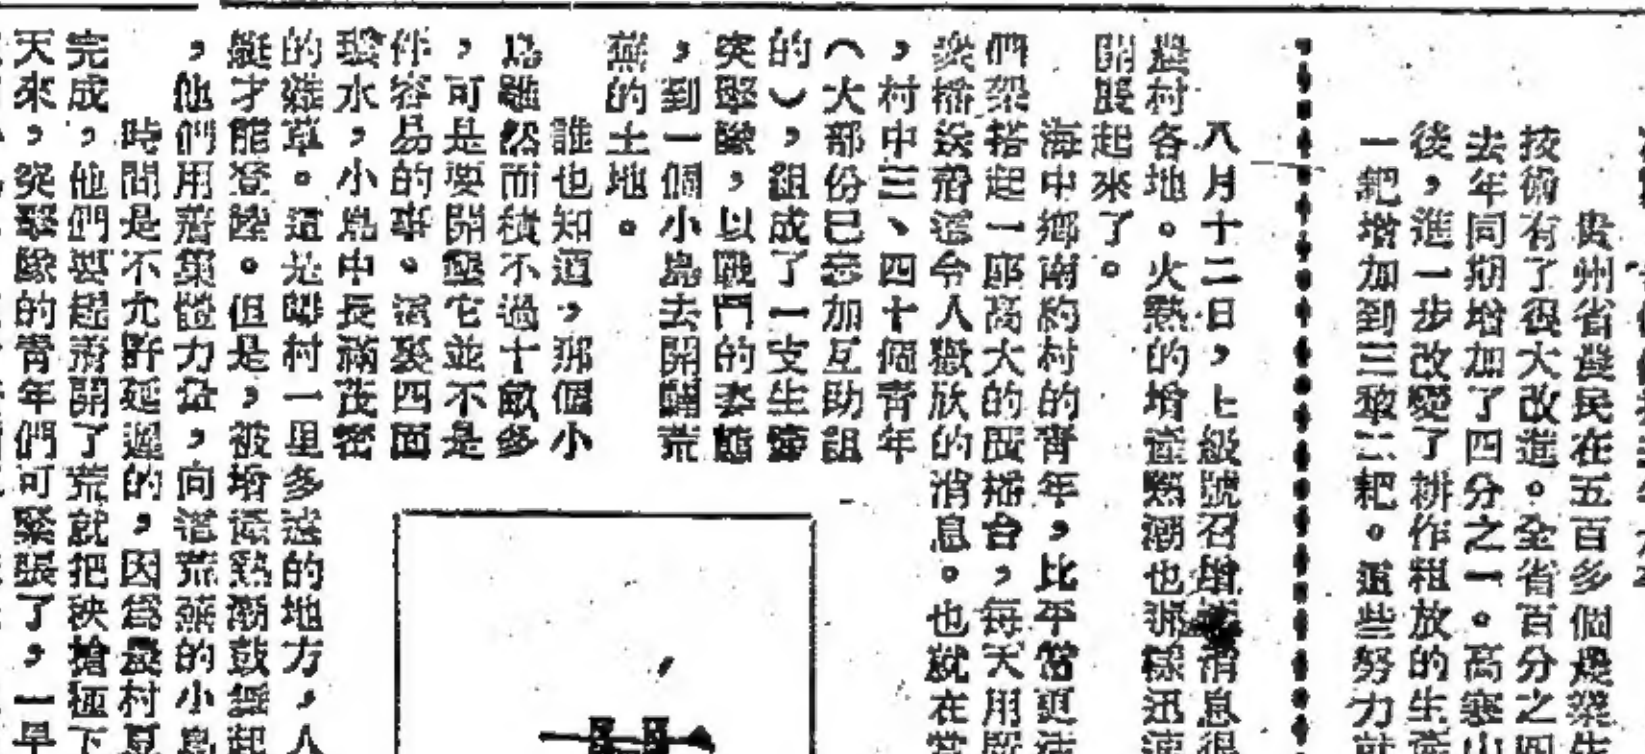 貴州省農民在五百多個農業生
技術有了很大改進。全省百分之四
去年同期增加了四分之一。高寒山
後,進一步改變了耕作粗放的生產
一耙增加到三敢二耙。這些努力就
八月十二日,上級號召增產消息很
農村各地。火熱的增產熱潮也那樣迅速
開展起來了。
海中鄉南約村的青年,比平常更活
們架搭起一座高大的廣播台,每天用廣
眾播送着這令人歡欣的消息。也就在當
,村中三、四十個青年
(大部份已参加互助組
的),組成了一支生產
突擊隊,以戰鬥的姿態
,到一個小島去開闢荒
蕪的土地。
誰也知道,那個小
島雖然面積不過十畝多
,可是要開墾它並不是
件容易的事。這裏四面
環水,小島中長滿茂密
的雜草。這是離村一里多遠的地方,人
艇才能登陸。但是,被增產熱潮鼓舞起
,他們用着集體力量,向這荒蕪的小島
時間是不允許延遲的,因為農村夏
完成,他們要趕着開了荒就把秧搶極下
天來,突擊隊的青年們可緊張了,一早